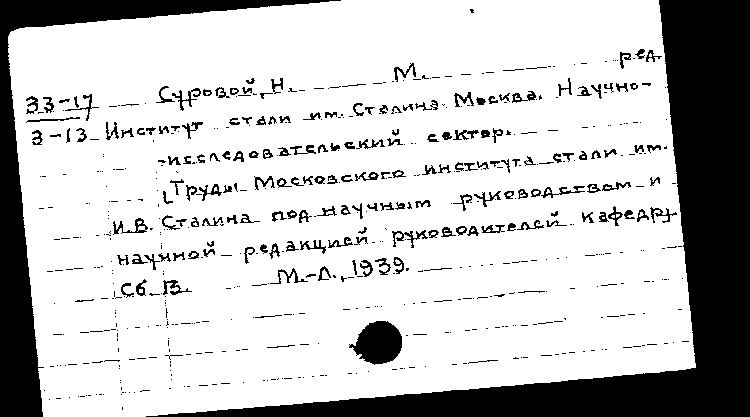 33-17 Суровой, Н. М. ред.
3-13 Институт стали им. Сталина. Москва. Научно-
-исследовательский сектор.
Труды Московского института стали им.
И.В. Сталина под научным руководством и
научной редакцией руководителей кафедр
Сб. 13. М.-Л., 1939.